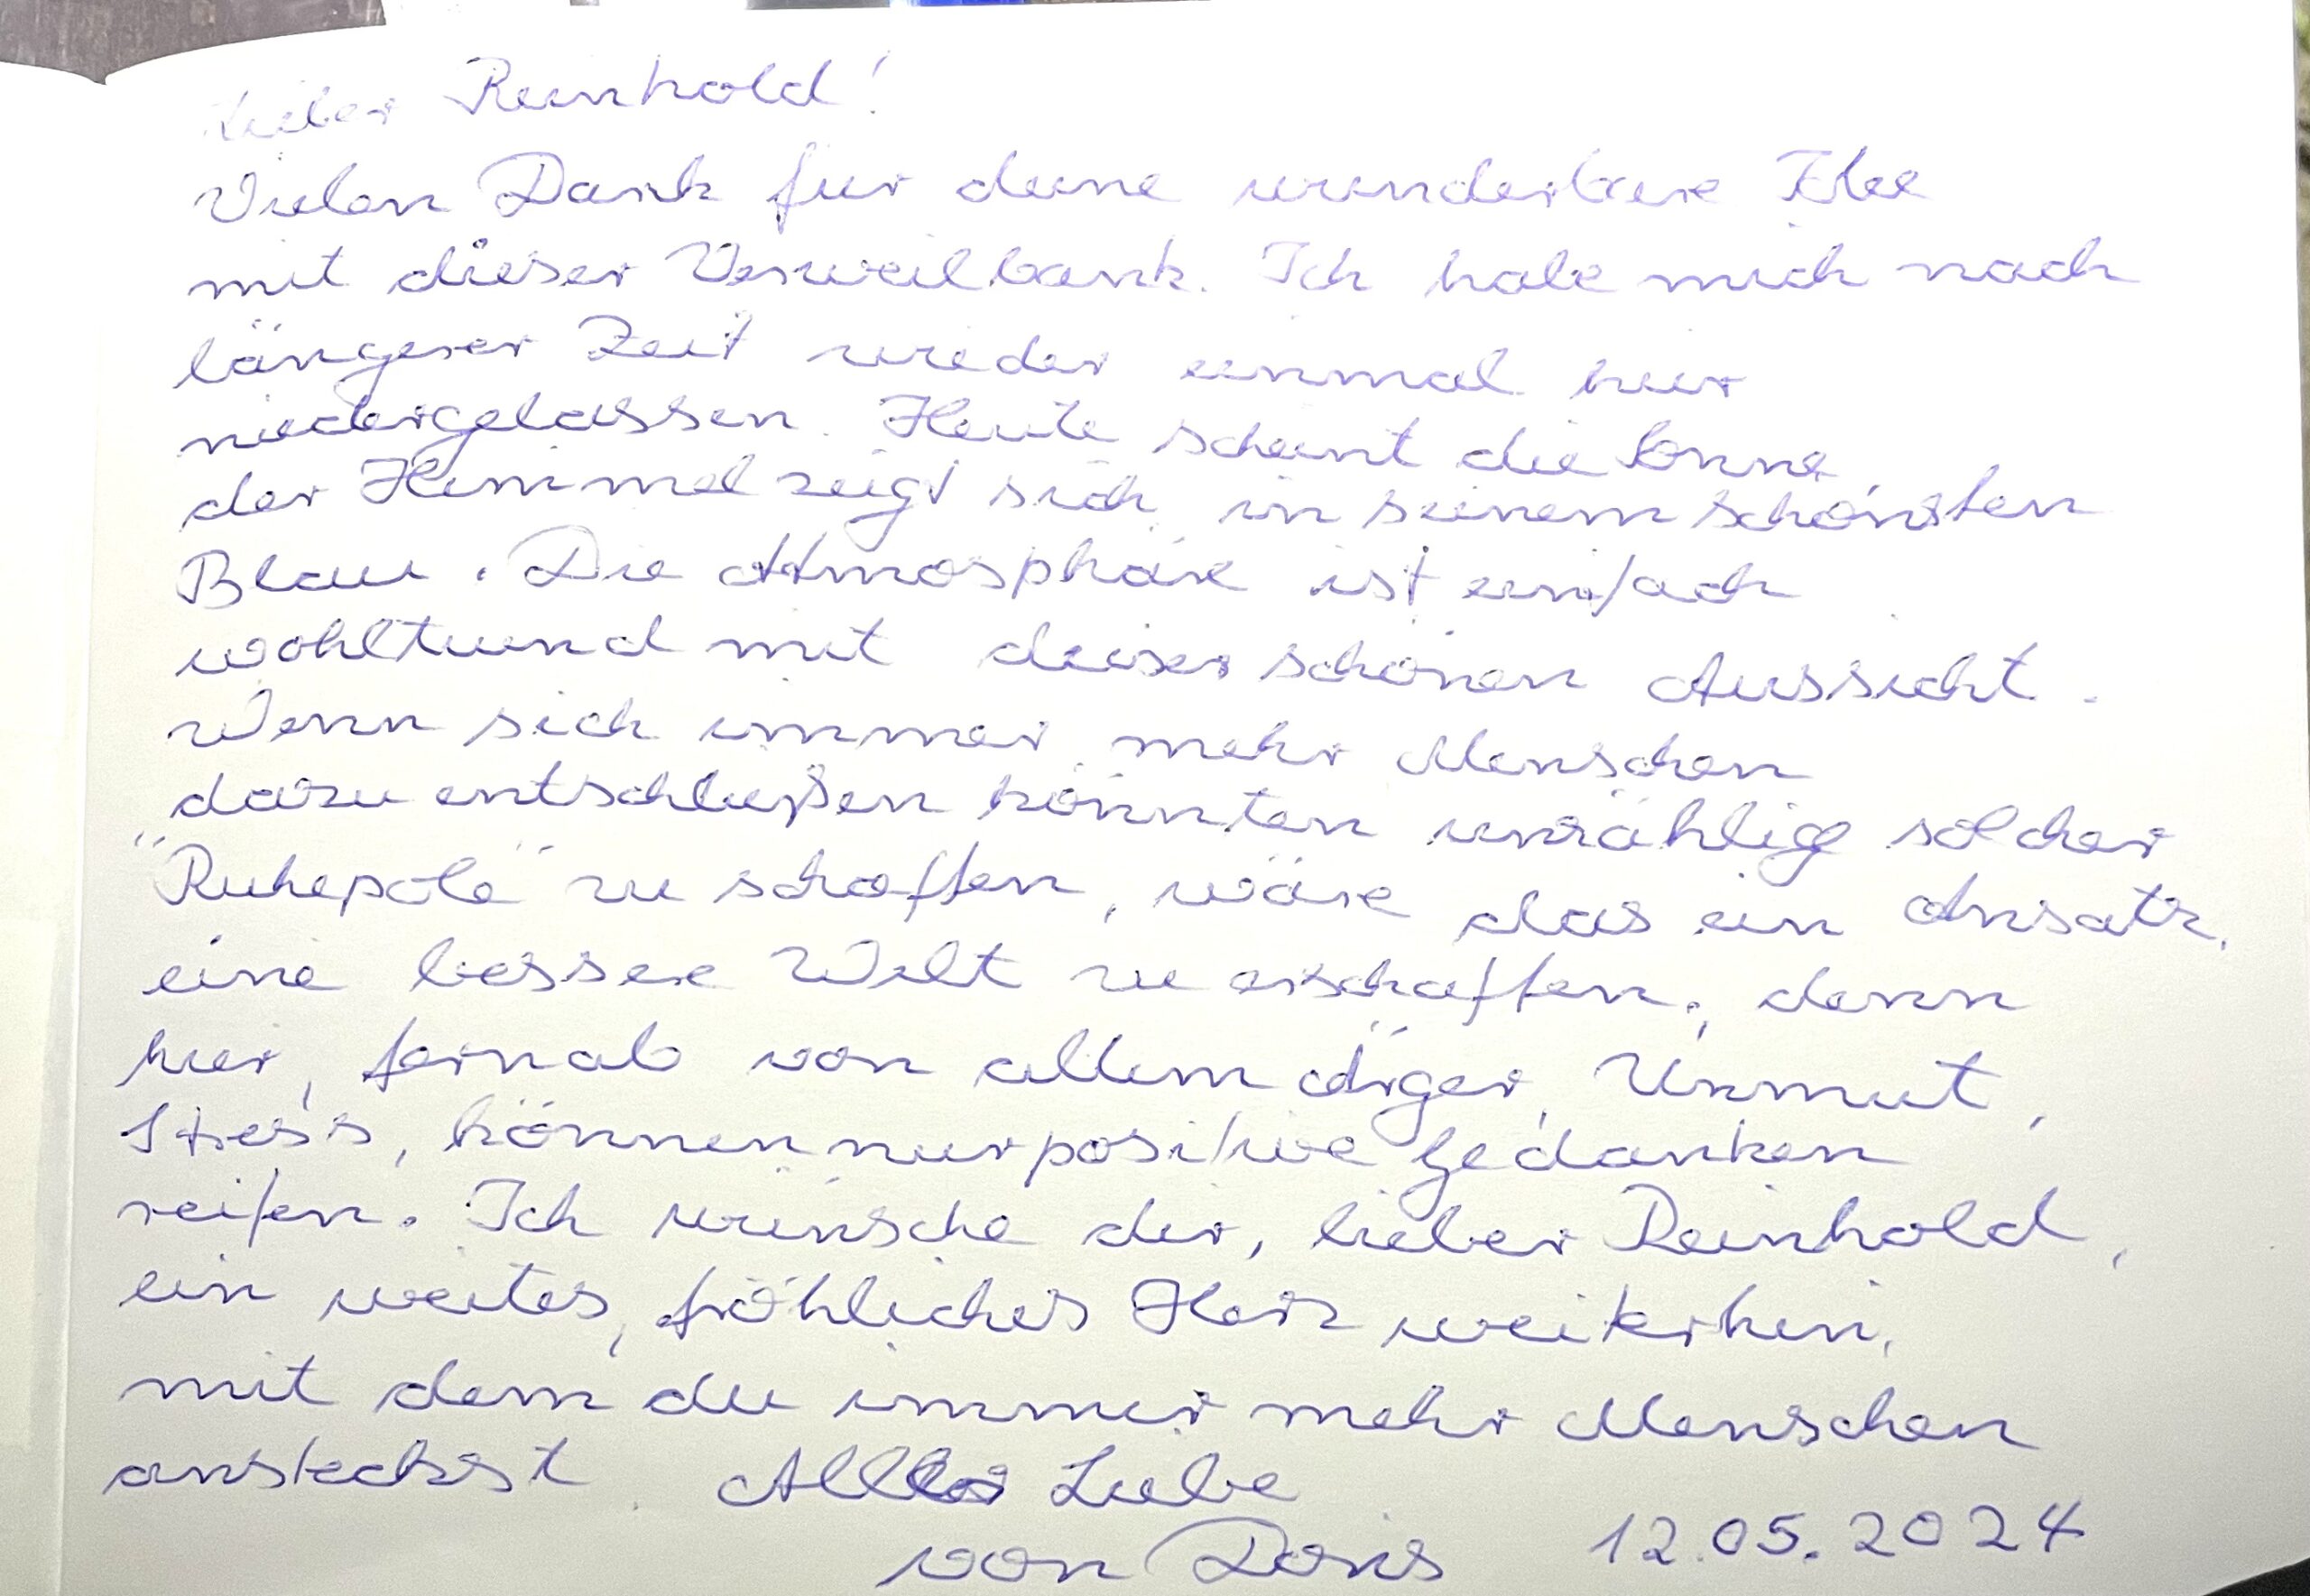 Lieber Reinhold!
Vielen Dank für deine wunderbare Idee
mit dieser Verweilbank. Ich habe mich nach
längerer Zeit wieder einmal hier
niedergelassen. Heute scheint die Sonne,
der Himmel zeigt sich in seinem schönsten
Blau. Die Atmosphäre ist einfach
wohltuend mit dieser schönen Aussicht.
Wenn sich immer mehr Menschen
dazu entschließen könnten unzählige solcher
"Ruhepole" zu schaffen, wäre das ein Ansatz,
eine bessere Welt zu erschaffen, denn
hier, fernab von allem Ärger, Unmut,
Stress, können nur positive Gedanken
reifen. Ich wünsche dir, lieber Reinhold,
ein weites, fröhliches Herz weiterhin,
mit dem du immer mehr Menschen
ansteckst. Alles Liebe
von Doris 12.05.2024